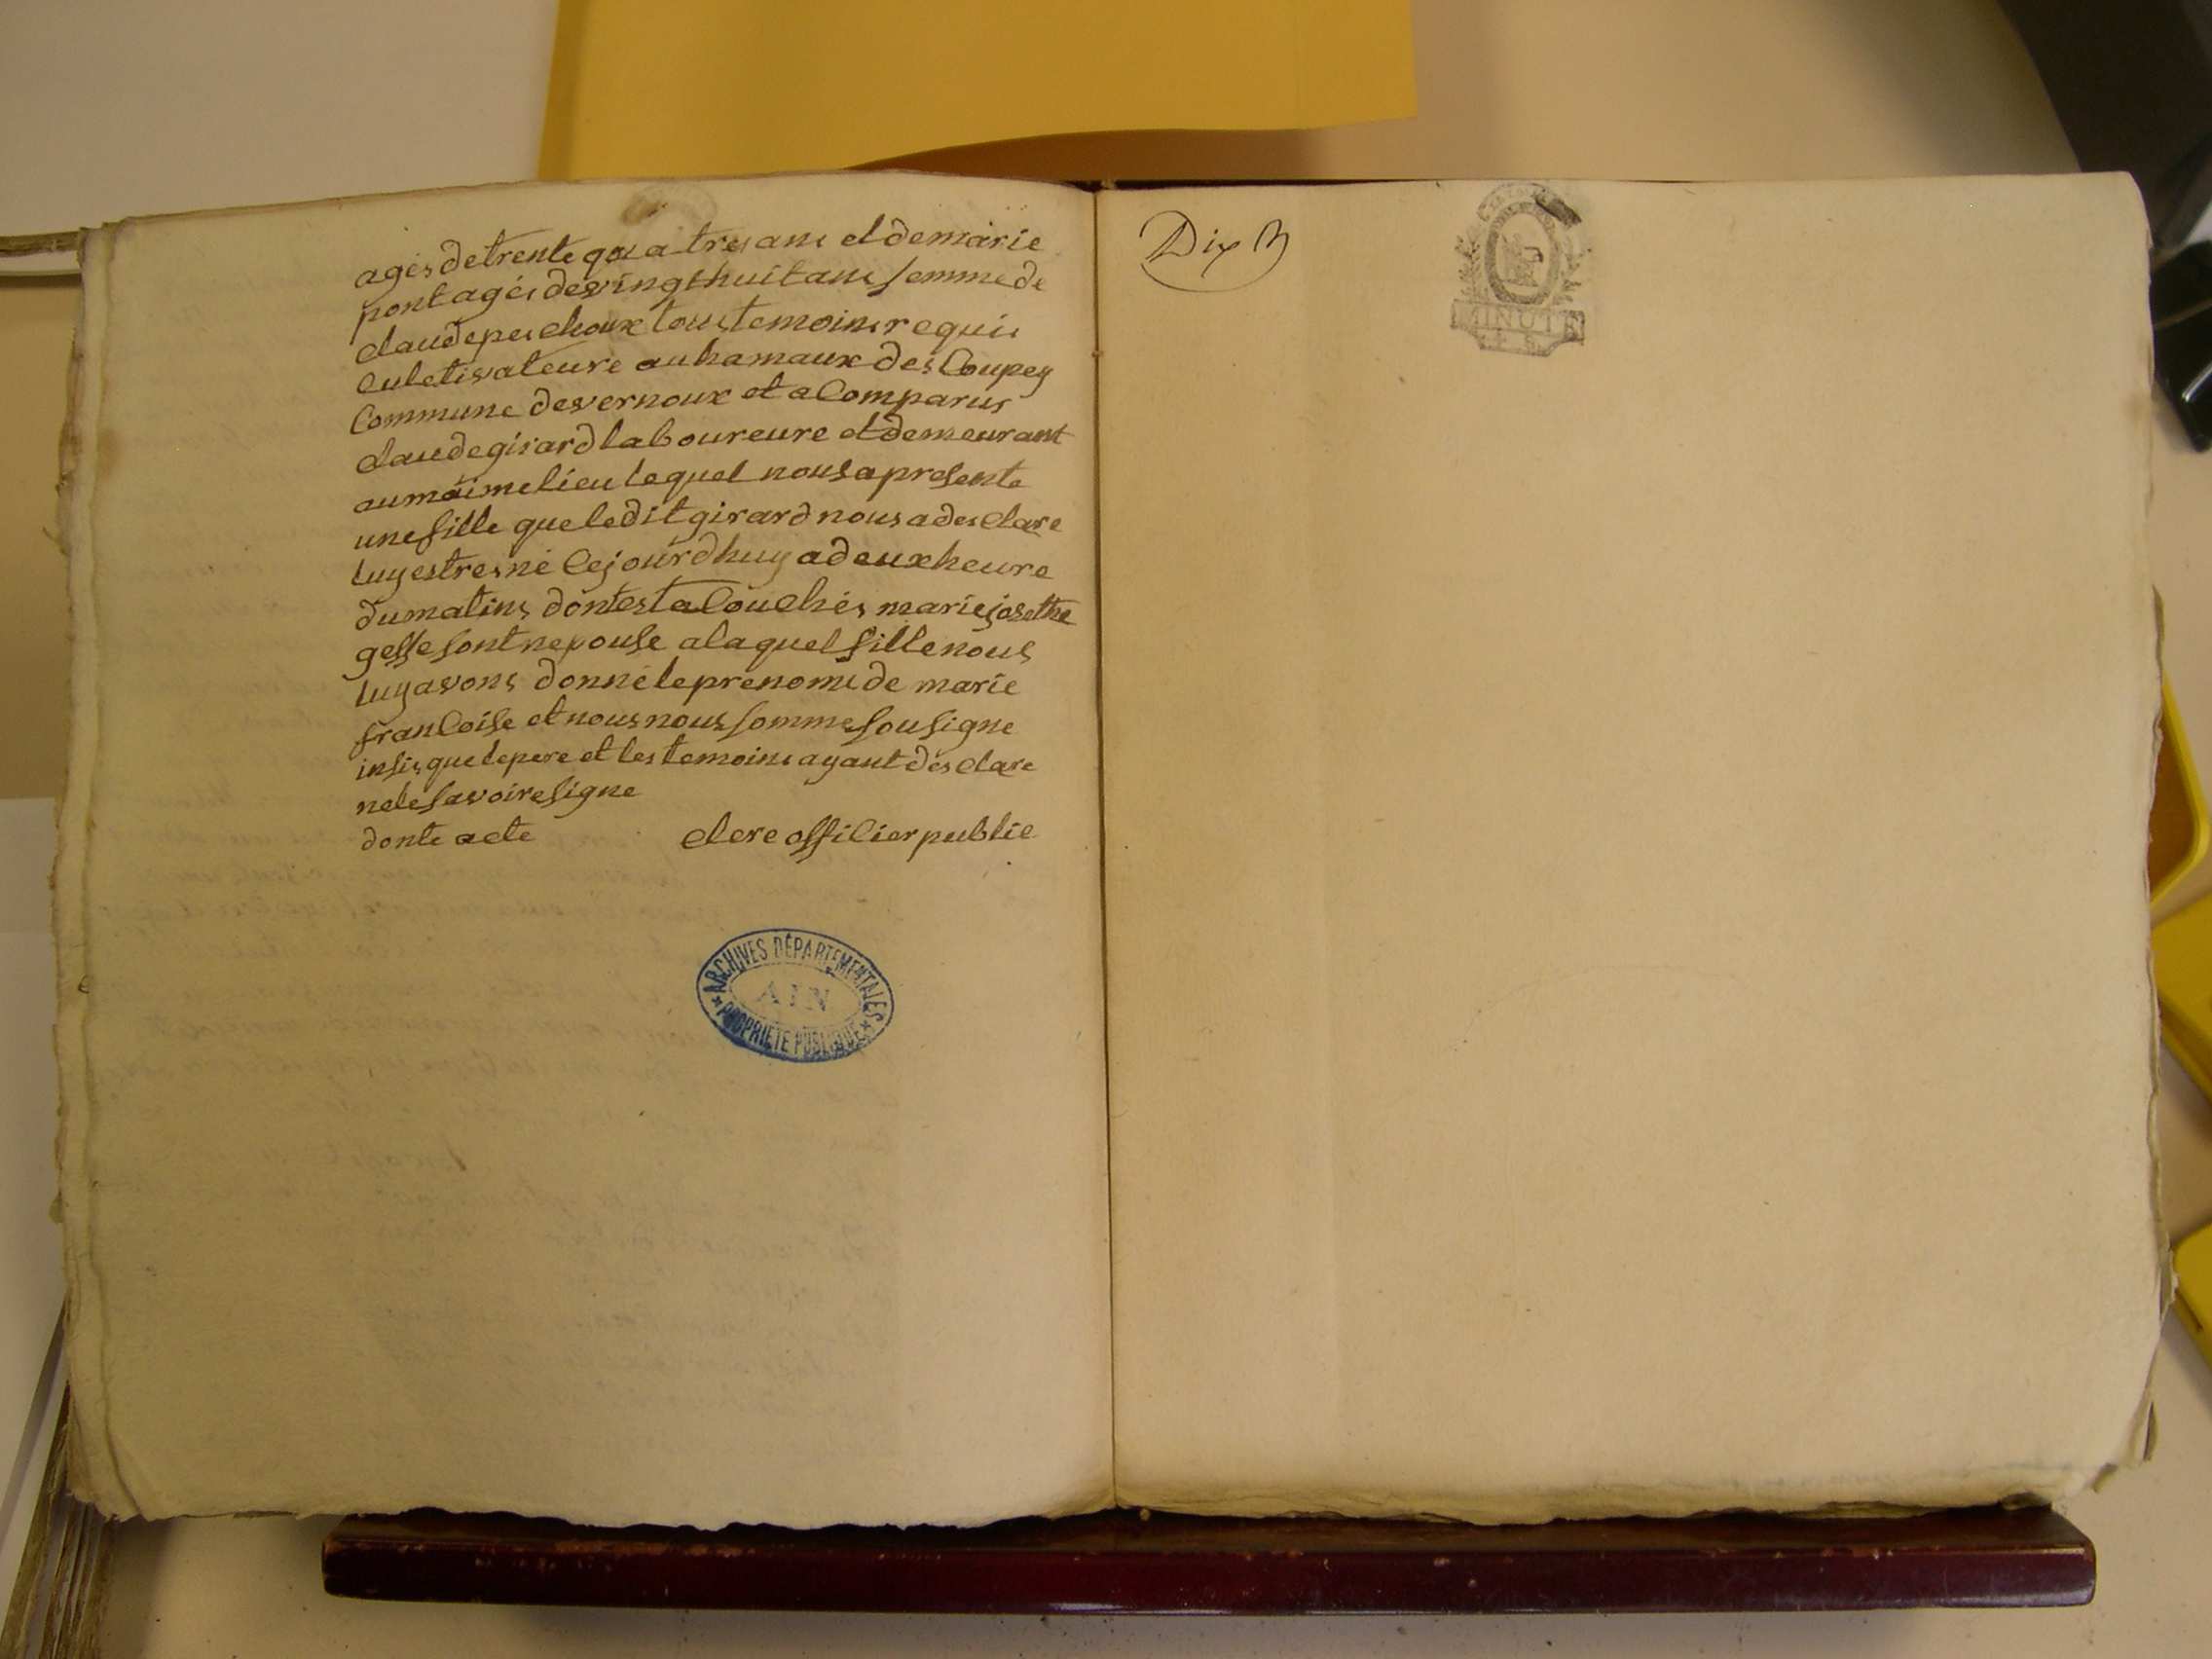 agés de trente quatres ans et de marie
pont agés des vingt huit ans femme de
claude peschoux tous temoins requis
culetivateure au hamaux des Coupey
Commune des vernoux et a Comparus
claude girard laboureure et demeurant
au maime lieu lequel nous a presente
une fille que le dit girard nous a desclare
luy estres né Cejourdhuy a deux heure
du matins dont est a Couchés marie josethe
gesse sont nepouse a laquel fille nous
luy avons donné le prenoms de marie
franCoise et nous nous somme sousigne
insis que le pere et les temoins ayant desclare
ne le savoire signe
donte acte clere offiCier public
ARCHIVES DÉPARTEMENTALES
AIN
PROPRIÉTÉ PUBLIQUE
Dix
MINUTE